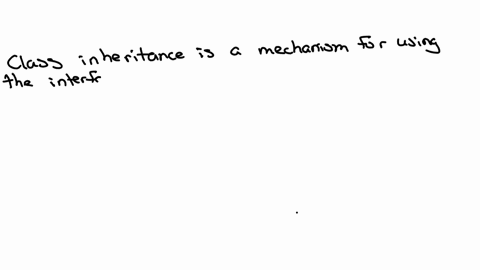 Class inheritance is a mechanism for using
the interf